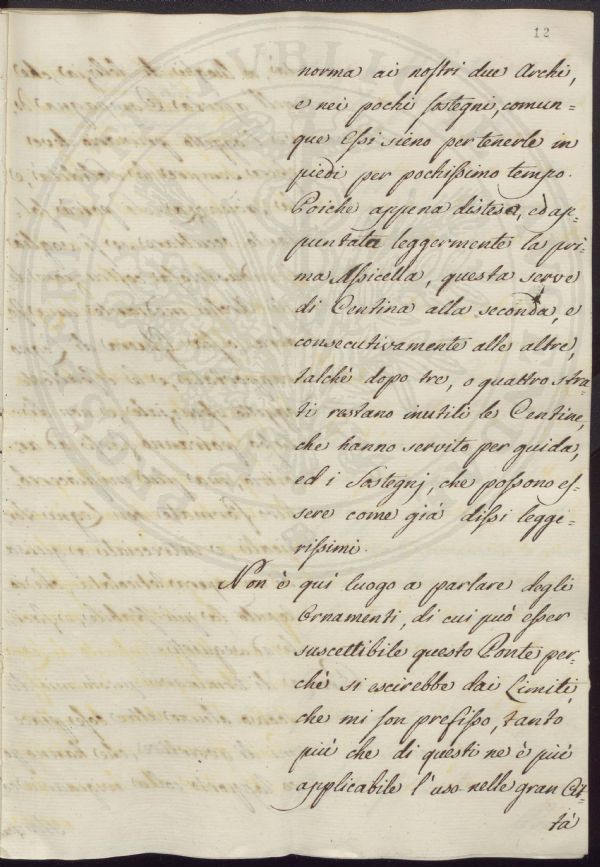 12
norma ai nostri due Archi,
e nei pochi sostegni, comun=
que Essi sieno per tenerle in
piedi per pochissimo tempo.
Poiche appena distesa, ed ap=
puntata leggermente la pri=
ma Assicella, questa serve
di Centina alla seconda, e
consecutivamente alle altre,
talchè dopo tre, o quattro stra=
ti restano inutili le Centine,
che hanno servito per guida,
ed i Sostegnj, che possono es=
sere come già dissi legge=
rissimi.
Non è qui luogo a parlare degli
Ornamenti, di cui può esser
suscettibile questo Ponte per=
chè si escirebbe dai Limiti,
che mi son prefisso, tanto
più che di questi ne è più
applicabile l'uso nelle gran Cit=
tà